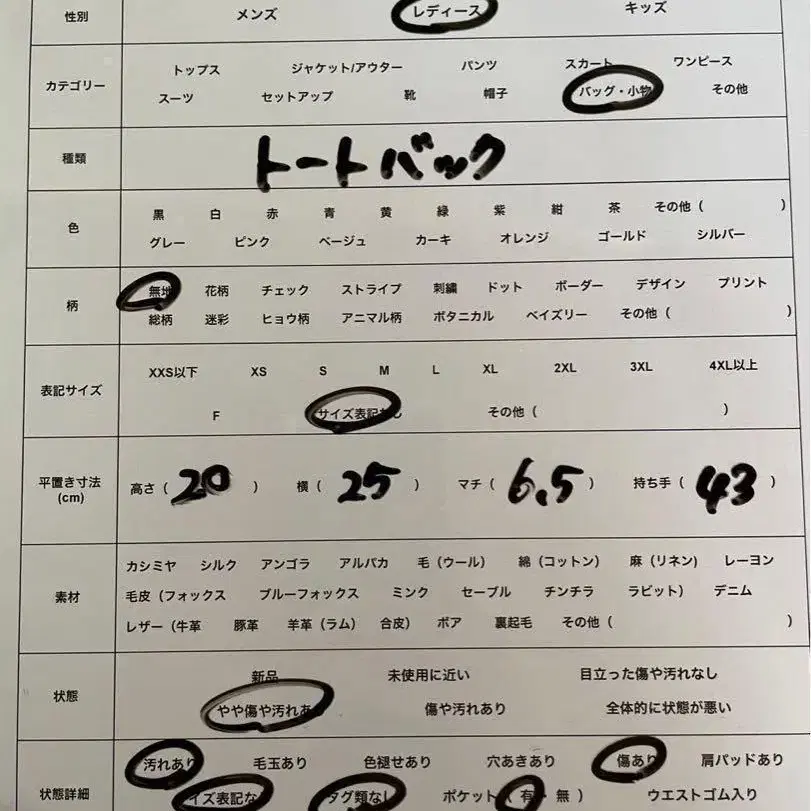 性別 メンズ レディース キッズ
トップス ジャケット/アウター パンツ スカート ワンピース
カテゴリー
スーツ セットアップ 靴 帽子 バッグ・小物 その他
種類 トートバック
黒 白 赤 青 黄 緑 紫 紺 茶 その他（ ）
色
グレー ピンク ベージュ カーキ オレンジ ゴールド シルバー
無地 花柄 チェック ストライプ 刺繍 ドット ボーダー デザイン プリント
柄
総柄 迷彩 ヒョウ柄 アニマル柄 ボタニカル ペイズリー その他（ ）
XXS以下 XS S M L XL 2XL 3XL 4XL以上
表記サイズ
F サイズ表記なし その他（ ）
平置き寸法
(cm)
高さ（ 20 ） 横（ 25 ） マチ（ 6.5 ） 持ち手（ 43 ）
カシミヤ シルク アンゴラ アルパカ 毛（ウール） 綿（コットン） 麻（リネン） レーヨン
素材 毛皮（フォックス ブルーフォックス ミンク セーブル チンチラ ラビット） デニム
レザー（牛革 豚革 羊革（ラム） 合皮） ボア 裏起毛 その他（ ）
新品 未使用に近い 目立った傷や汚れなし
状態
やや傷や汚れあり 傷や汚れあり 全体的に状態が悪い
汚れあり 毛玉あり 色褪せあり 穴あきあり 傷あり 肩パッドあり
状態詳細
イズ表記な タグ類なし ポケット（ 有・無 ） ウエストゴム入り